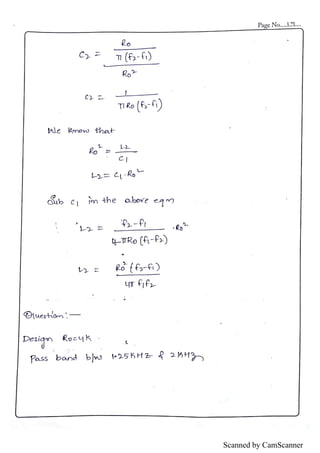 Page No...171...
C2 = Ro / π(f2-f1) / Ro²
C2 = 1 / πRo(f2-f1)
We know that
Ro² = L2 / C1
L2 = C1.Ro²
Sub C1 in the above eqn
L2 = f2-f1 / 4πRo(f1-f2) .Ro²
L2 = Ro²(f2-f1) / 4π f1f2
Question:—
Design Ro=4K
Pass band b/w 1.25KHZ & 2KHZ
Scanned by CamScanner